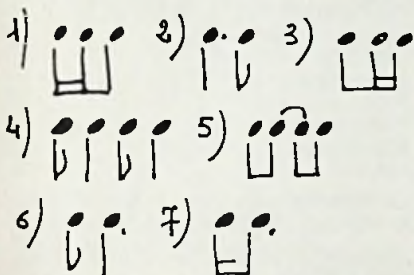 1) 2) 3)
4) 5)
6) 7)